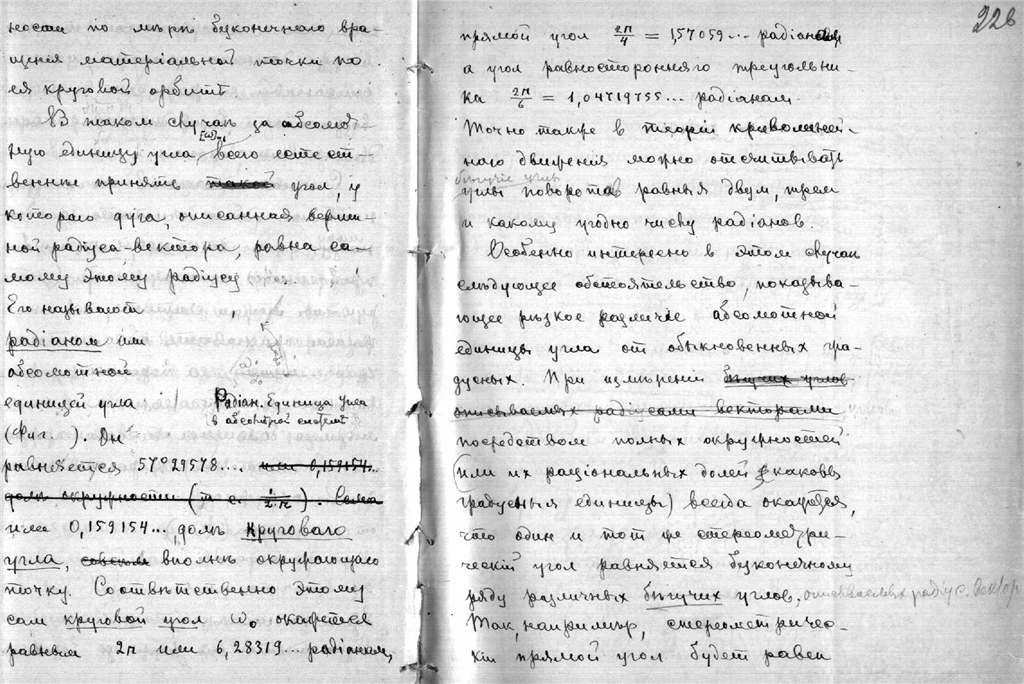 ности по мѣрѣ безконечнаго вра-
щенія матеріальной точки по
ея круговой орбитѣ.
В таком случаѣ за абсолют-
ную единицу угла всего естест-
веннѣе принять такой угол, у
котораго дуга, описанная верши-
ной радіуса-вектора, равна са-
мому этому радіусу
Его называют
радіаном или
абсолютной
единицей угла
(Фиг. ). Он
Радіан. Единица угла
в абсолютной системѣ
равняется 57°29578.... или 0,159154...
доли окружности (т. е. 1/2π). Сама
или 0,159154... доли кругового
угла, совсѣм вполнѣ окружающаго
точку. Соотвѣтственно этому
сам круговой угол ω₀ окажется
равным 2π или 6,28319... радіанам,
226
прямой угол 2π/4 = 1,57059... радіанам
а угол равносторонняго треугольни-
ка 2π/6 = 1,04719755... радіанам.
Точно также в теоріи криволиней-
наго движенія можно отсчитывать
бѣгучіе углы
углы поворота равные двум, трем
и какому угодно числу радіанов.
Особенно интересно в этом случаѣ
слѣдующее обстоятельство, показыва-
ющее рѣзкое различіе абсолютной
единицы угла от обыкновенных гра-
дусных. При измѣреніи бѣгучих углов
описываемых радіусами векторами углов
посредством полных окружностей
(или их раціональных долей каковы
градусныя единицы) всегда окажется,
что один и тот же стереометри-
ческій угол равняется безконечному
ряду различных бѣгучих углов, описываемых радіус. вектор.
Так, например, стереометричес-
кій прямой угол будет равен